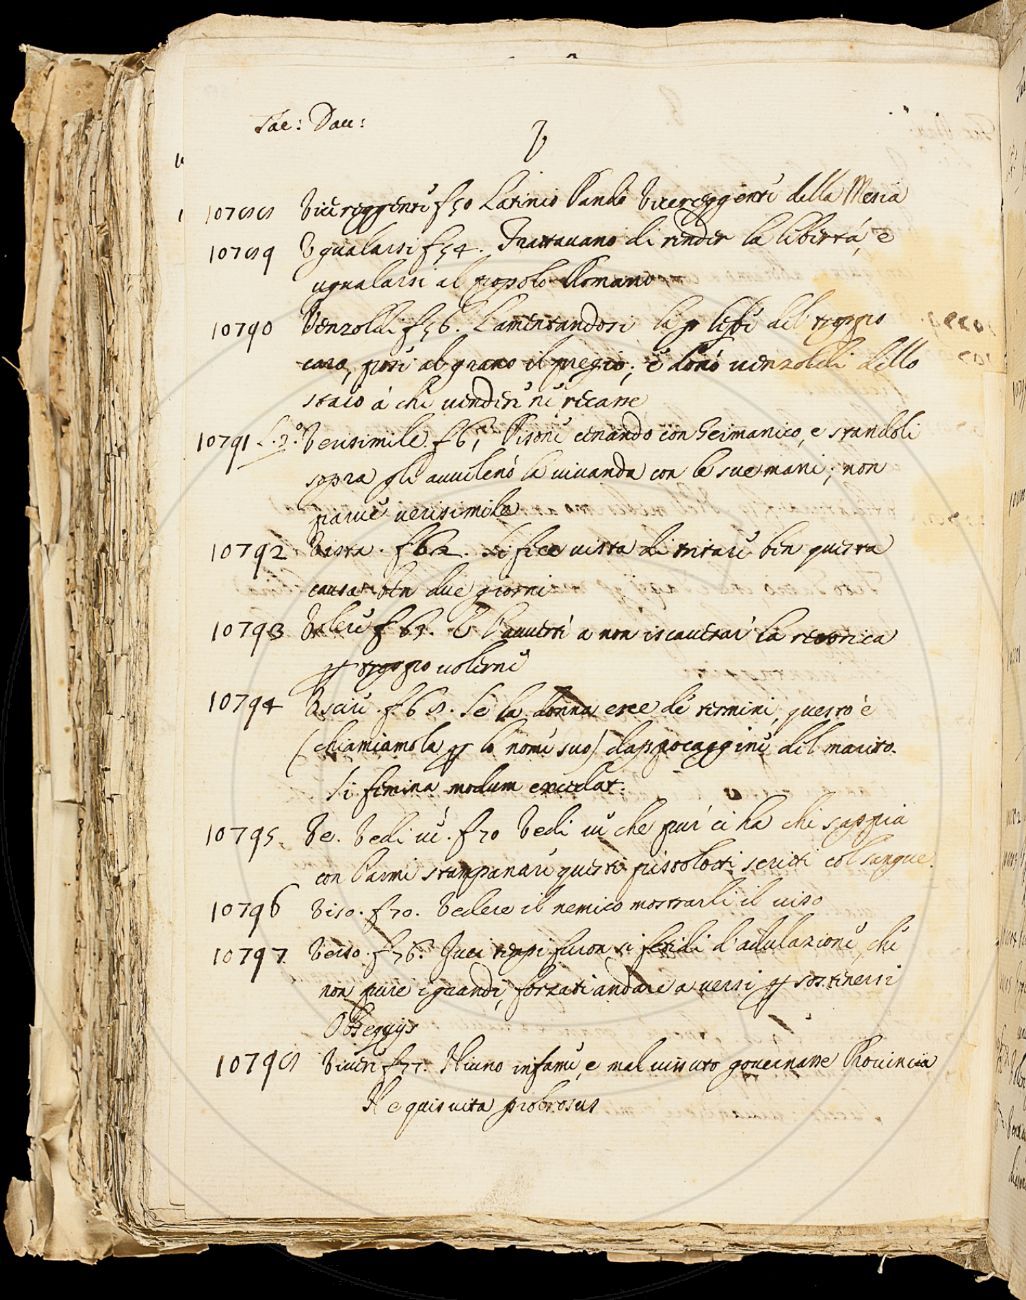 Tac: Dau:
V
10788 Vicereggenti f 50 Latinio Pando Vicereggenti della Mesia
10789 Vgualarsi f 54. Trattauano di render la libertà, e
ugualarsi al popolo Romano
10790 Venzoldi f 56. Lamentandosi la plebe del troppo
caro, pose al grano il pregio; e donò uenzoldi dello
staio à chi uender ne recasse
10791 L. 3.° Verisimile f 61 Pisone cenando con Germanico, e standoli
sopra gli auuelenò la uiuanda con le sue mani; non
parue uerisimile
10792 Vista. f 62. Si fece uista di tirare ben questa
causa ben due giorni
10793 Volere f 67. E l'auuertì a non iscauezzare la
per troppo uolerne
10794 Vscire. f 68. Se la donna esce de termini, questo è
(chiamiamola per lo nome suo) dappocaggine del marito.
Si femina modum excedat.
10795 Ve. Vedi ue. f 70 Vedi ue che pur ci ha chi sappia
con l'armi stampanare questi scritti col sangue.
10796 Viso. f 70. Vedere il nemico mostrarli il uiso
10797 Verso. f 76. Quei tempi furon si fetidi d'adulazione, che
non pure i grandi, forzati andare a uersi per sostenersi
Obsequijs
10798 Viuere f 77. Niuno infame, e mal uissuto gouernasse Prouincia
Ne quis uita probrosus